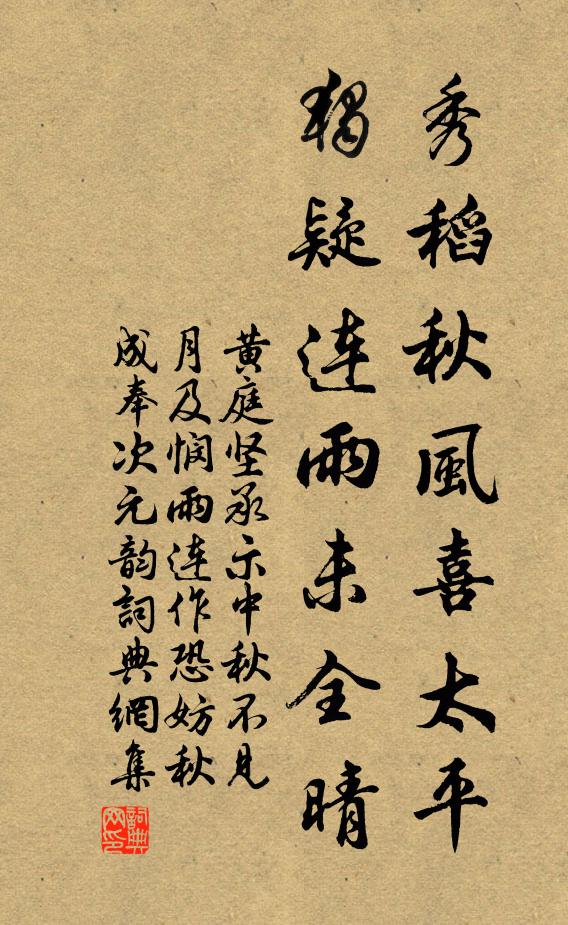 秀稻秋風喜太平
獨疑連雨未全晴
黄庭坚承示中秋不見
月及悯雨連作恐妨秋
成奉次元韵詞典網集
詞典
网印